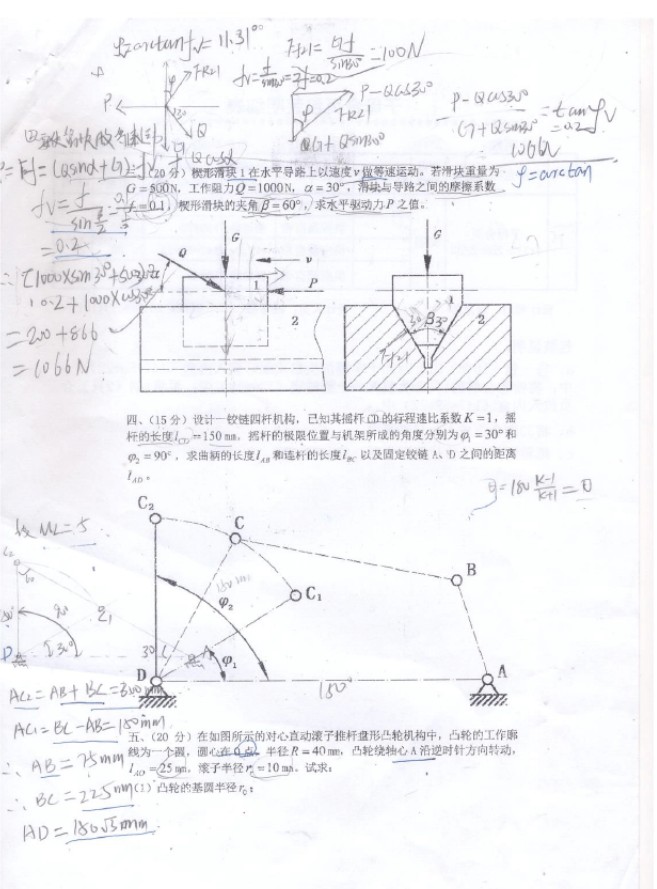 φv=arctanfv=11.31°
FR21
φ
P
30°
Q
G
Ff21=Gf/sin30°=100N
fv=f/sin30°=2f=0.2
P-Qcos30°
FR21
φ
G+Qsin30°
P-Qcos30°/G+Qsin30°=tanφv
=0.2
1066N
φ=arctan
P=Ff=(Qsinα+G)·fv+Qcosα
三、(20 分) 楔形滑块 1 在水平导路上以速度 v 做等速运动。若滑块重量为
G=500N，工作阻力 Q=1000N，α=30°，滑块与导路之间的摩擦系数
f=0.1，楔形滑块的夹角 β=60°，求水平驱动力 P 之值。
fv=f/sin β/2=
=0.2
∴(1000×sin30°+500)×
0.2+1000×cos30°
=200+866
=1066N
Q
G
v
P
1
2
G
1
β
30°
2
Ff21
四、(15 分) 设计一铰链四杆机构，已知其摇杆 CD 的行程速比系数 K=1，摇
杆的长度 lCD=150 mm，摇杆的极限位置与机架所成的角度分别为 φ1=30°和
φ2=90°，求曲柄的长度 lAB 和连杆的长度 lBC 以及固定铰链 A、D 之间的距离
lAD。
θ=180 K-1/K+1=0
μL=5
C2
C
B
C1
150mm
φ2
φ1
30
D
A
150
C2
60
90°
C1
30°
D
AC2=AB+BC=300mm
AC1=BC-AB=150mm
∴AB=75mm
∴BC=225mm
AD=150√3mm
五、(20 分) 在如图所示的对心直动滚子推杆盘形凸轮机构中，凸轮的工作廓
线为一个圆，圆心在 O 点，半径 R=40 mm，凸轮绕轴心 A 沿逆时针方向转动，
lAO=25 mm，滚子半径 rr=10 mm，试求：
(1) 凸轮的基圆半径 r0；